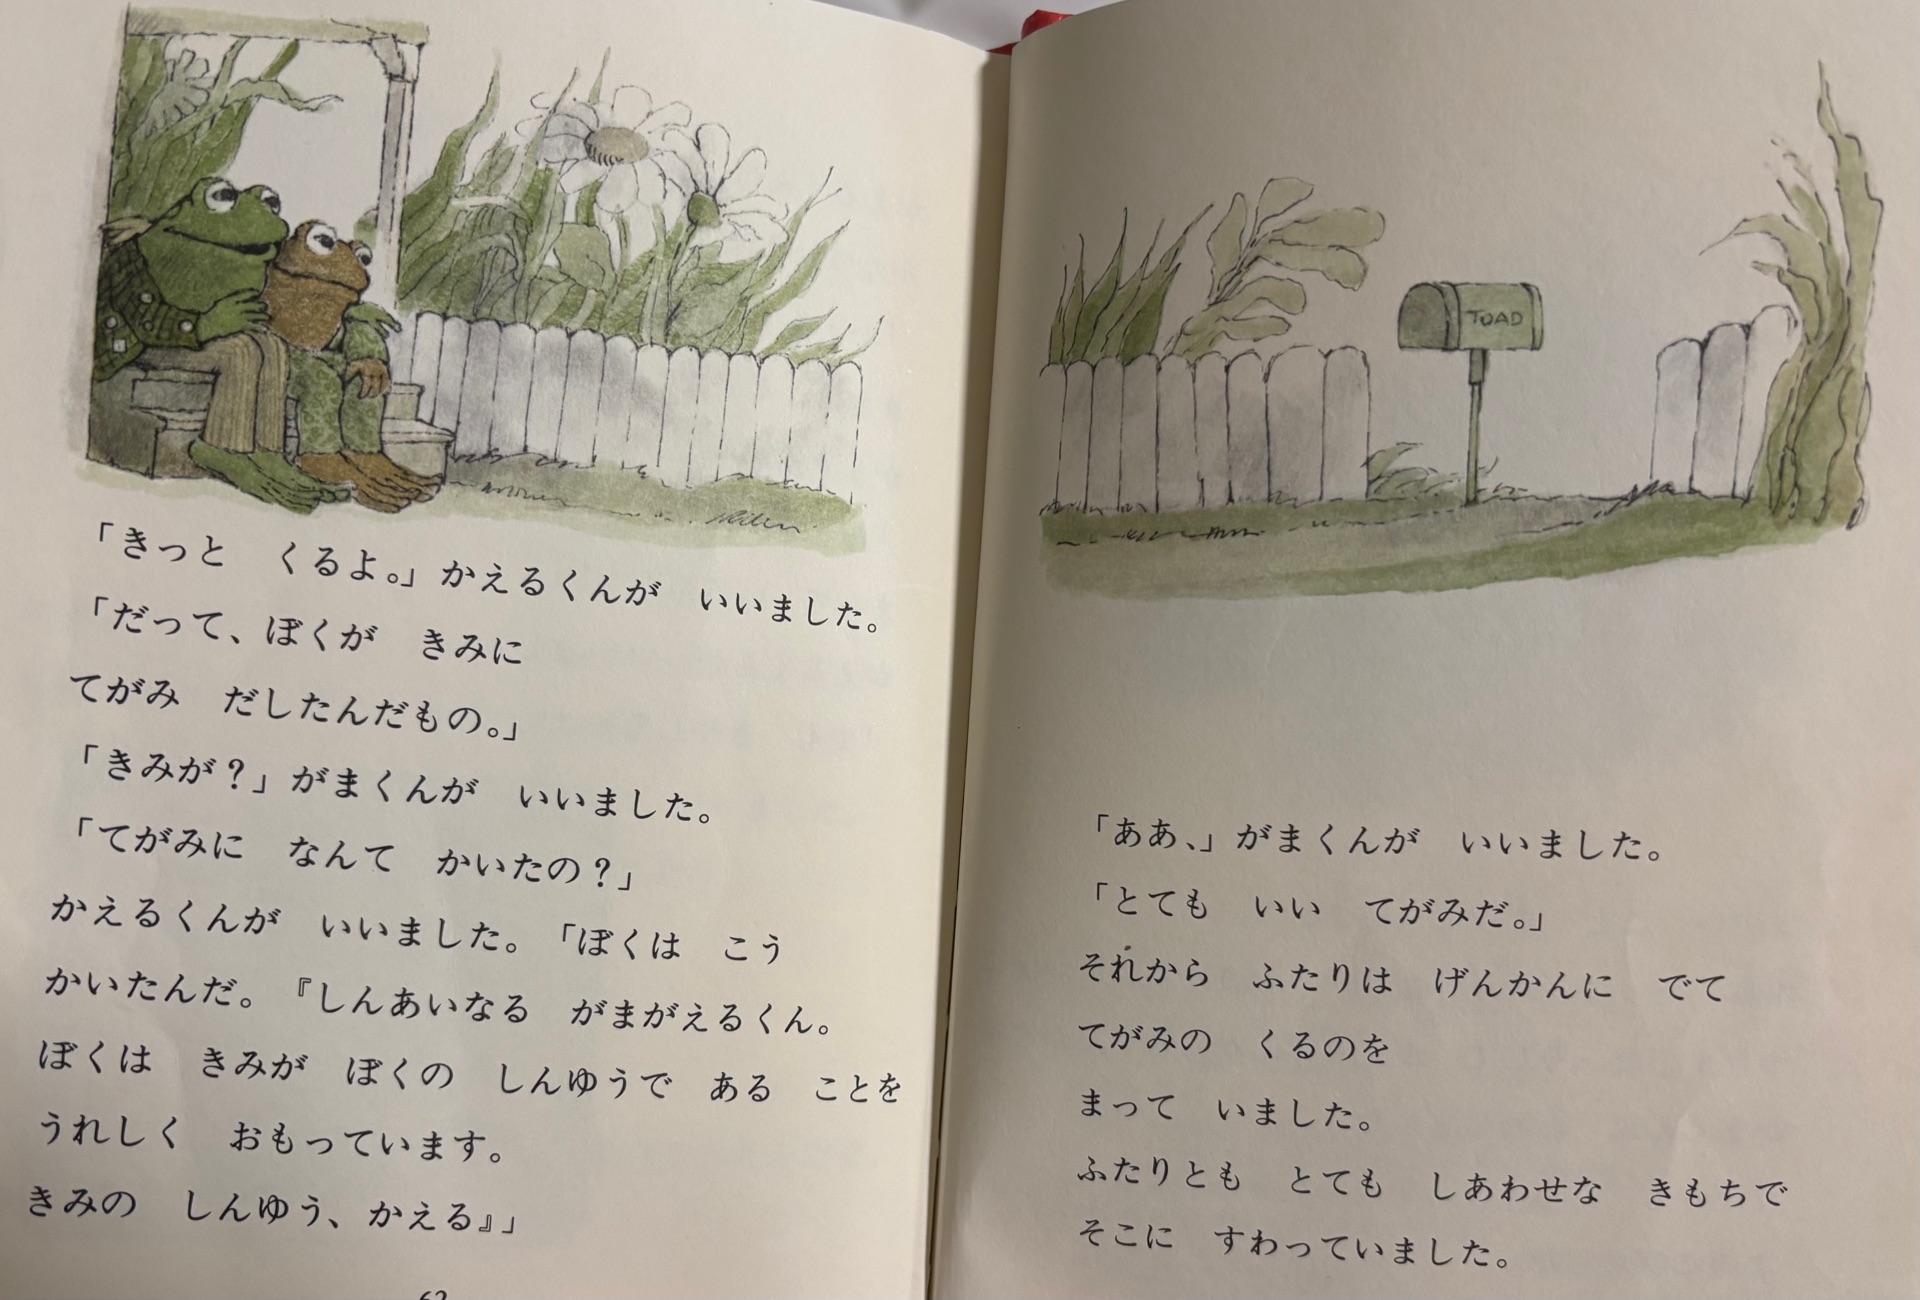 「きっと　くるよ。」かえるくんが　いいました。
「だって、ぼくが　きみに
てがみ　だしたんだもの。」
「きみが？」がまくんが　いいました。
「てがみに　なんて　かいたの？」
かえるくんが　いいました。「ぼくは　こう
かいたんだ。『しんあいなる　がまがえるくん。
ぼくは　きみが　ぼくの　しんゆうで　ある　ことを
うれしく　おもっています。
きみの　しんゆう、かえる』」
TOAD
「ああ、」がまくんが　いいました。
「とても　いい　てがみだ。」
それから　ふたりは　げんかんに　でて
てがみの　くるのを
まって　いました。
ふたりとも　とても　しあわせな　きもちで
そこに　すわっていました。